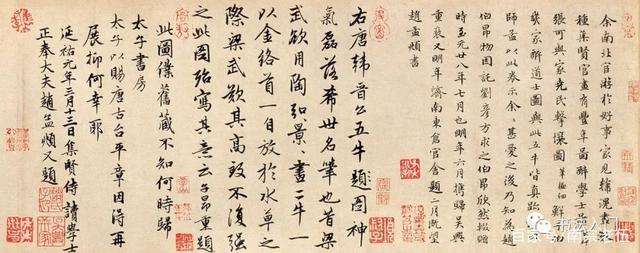 余南北宦游於好事家見韓滉畫數
種集賢官畫有豐年圖醉學士圖最神
張可與家堯民擊壤圖筆極細鮮于伯
幾家醉道士圖與此五牛皆真跡初田
師孟以此卷示余余甚愛之後乃知為趙
伯昂物因託劉彥方求之伯昂欣然輟贈
時至元廿八年七月也明年六月攜歸吳興
重裝又明年濟南東倉官舍題二月既望
趙孟頫書
右唐韓晉公五牛題圖神
氣磊落希世名筆也昔梁
武欲用陶弘景畫二牛一
以金絡首一自放於水草之
際梁武欽其高致不復強
之此圖殆寫其意云子昂重題
此圖僕舊藏不知何時歸
太子書房
太子以賜唐古台平章因得再
展抑何幸耶
延祐元年三月十三日集賢侍讀學士
正奉大夫趙孟頫又題
书法入门